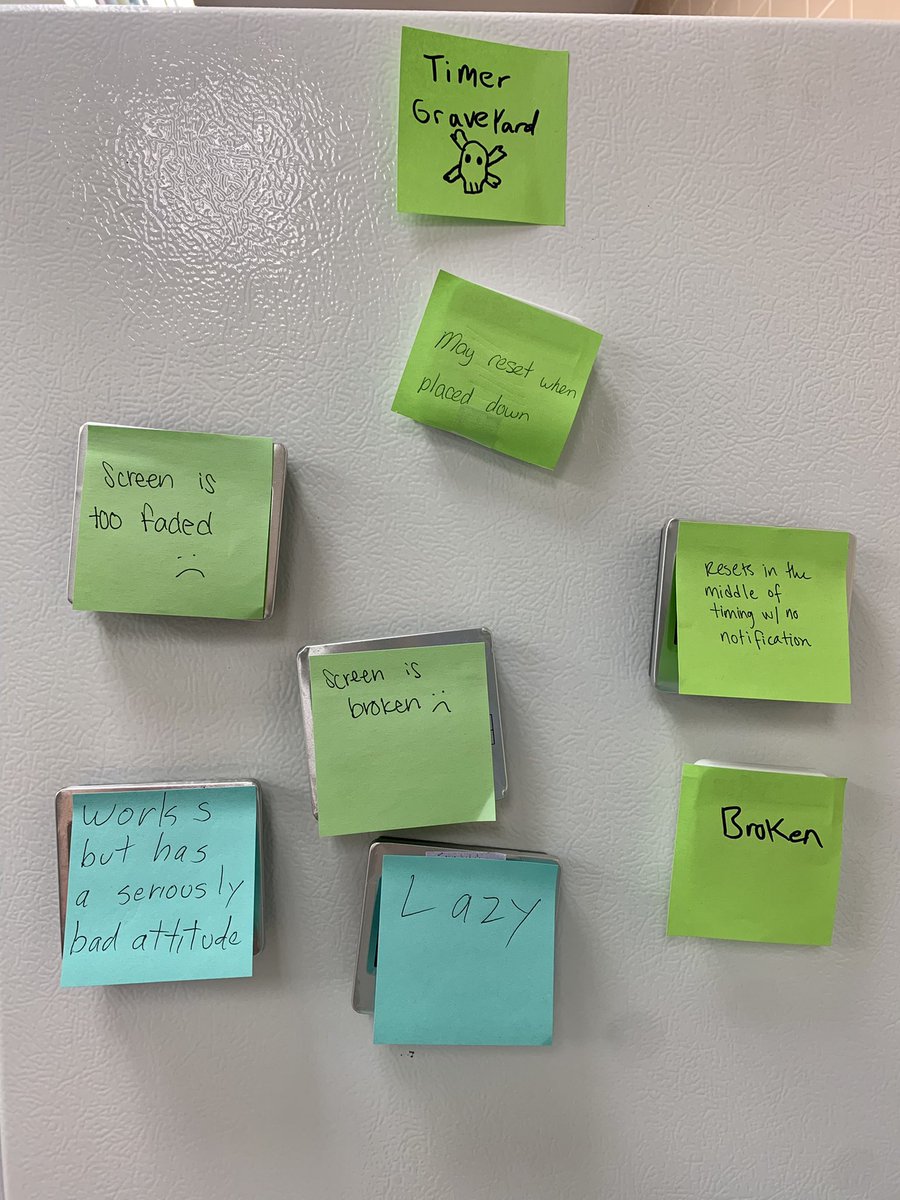 Timer
Graveyard
May reset when
placed down
Screen is
too faded
Resets in the
middle of
timing w/ no
notification
Screen is
broken :(
Works
but has
a seriously
bad attitude
Lazy
Broken